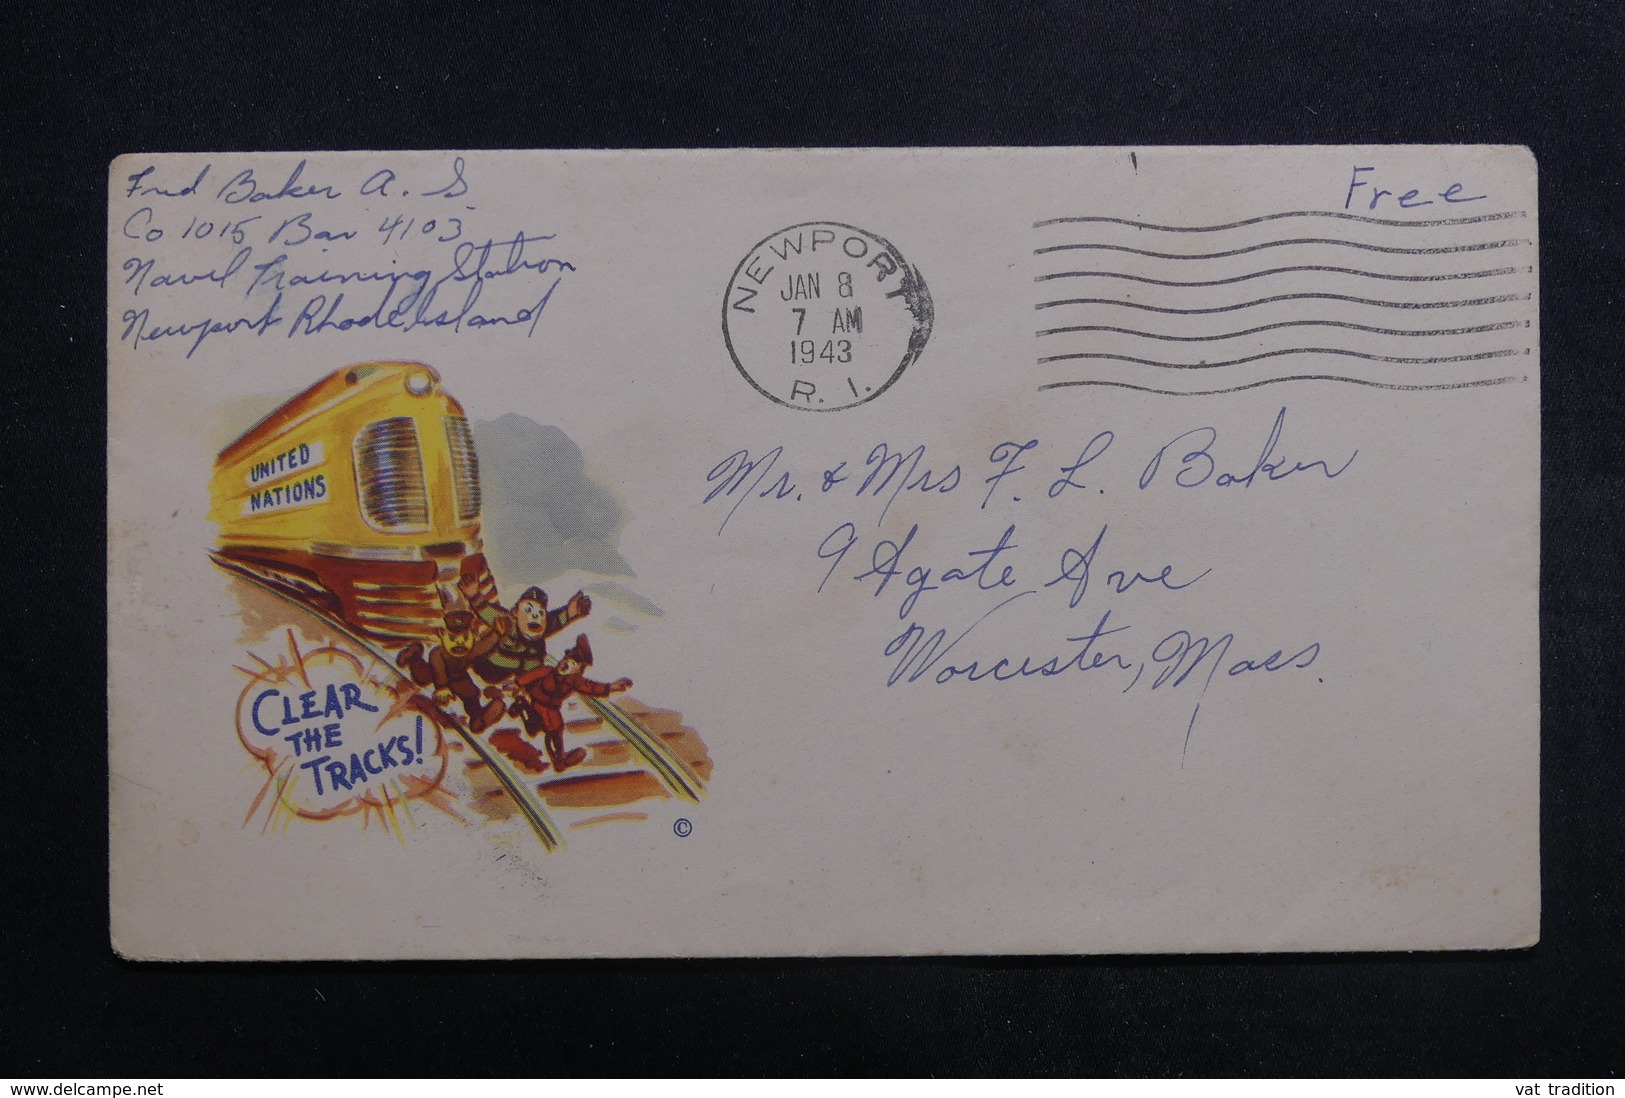 Fred Baker A. S.
Co 1015 Bar 4103
Naval Training Station
Newport Rhode Island
Free
NEWPORT
JAN 8
7 AM
1943
R. I.
Mr. & Mrs F. L. Baker
9 Agate Ave
Worcester, Mass.
UNITED
NATIONS
CLEAR
THE
TRACKS!
©
www.delcampe.net
vat tradition